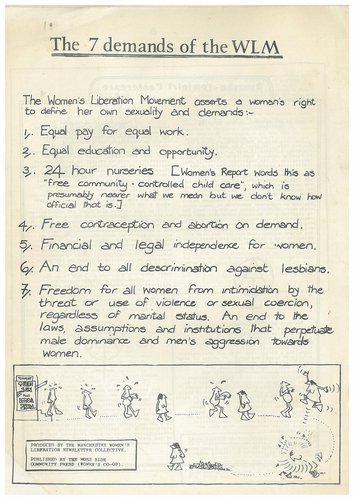 The 7 demands of the WLM
The Women's Liberation Movement asserts a woman's right
to define her own sexuality and demands:-
1,. Equal pay for equal work.
2,. Equal education and opportunity.
3,. 24 hour nurseries [Women's Report words this as
"free community-controlled child care", which is
presumably nearer what we mean but we don't know how
official that is.]
4,. Free contraception and abortion on demand.
5,. Financial and legal independence for women.
6,. An end to all descrimination against lesbians.
7,. Freedom for all women from intimidation by the
threat or use of violence or sexual coercion,
regardless of marital status. An end to the
laws, assumptions and institutions that perpetuate
male dominance and men's aggression towards
women.
PRODUCED BY THE MANCHESTER WOMEN'S
LIBERATION NEWSLETTER COLLECTIVE.
PUBLISHED BY THE MOSS SIDE
COMMUNITY PRESS (WOMEN'S CO-OP).